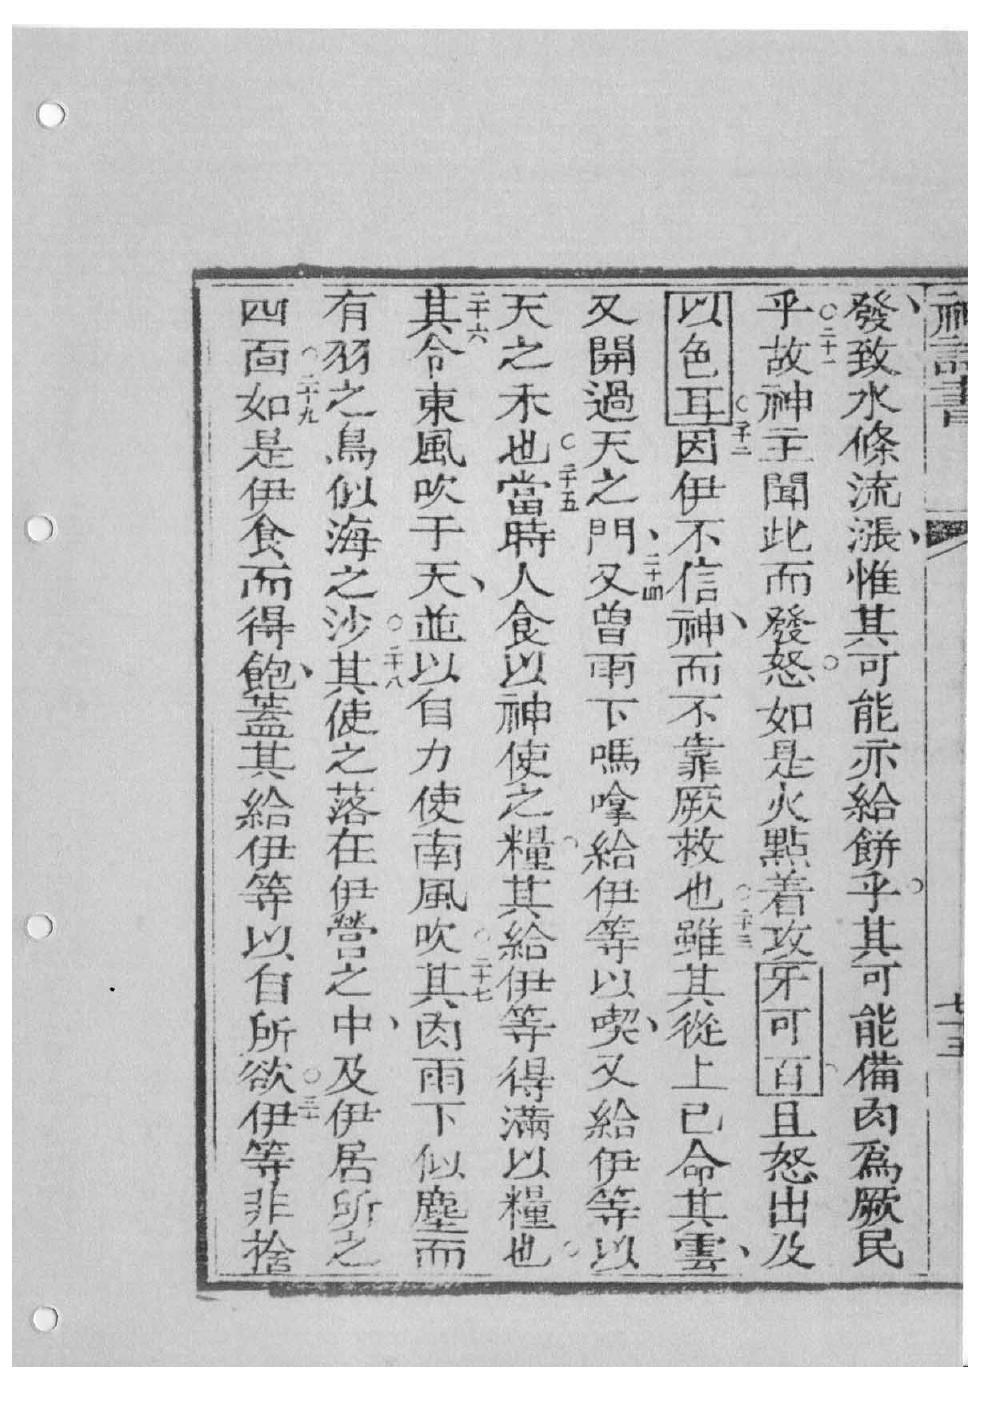 神詩書 七十五
發致水條流漲惟其可能亦給餅乎其可能備肉爲厥民
乎○二十一故神主聞此而發怒如是火點着攻牙可百且怒出及
以色耳○二十二因伊不信神而不靠厥救也○二十三雖其從上已命其雲
又開過天之門二十四又曾雨下嗎嗱給伊等以喫又給伊等以
天之禾也○二十五當時人食以神使之糧其給伊等得滿以糧也
二十六其令東風吹于天並以自力使南風吹○二十七其肉雨下似塵而
有羽之鳥似海之沙○二十八其使之落在伊營之中及伊居所之
四面○二十九如是伊食而得飽蓋其給伊等以自所欲○三十伊等非捨